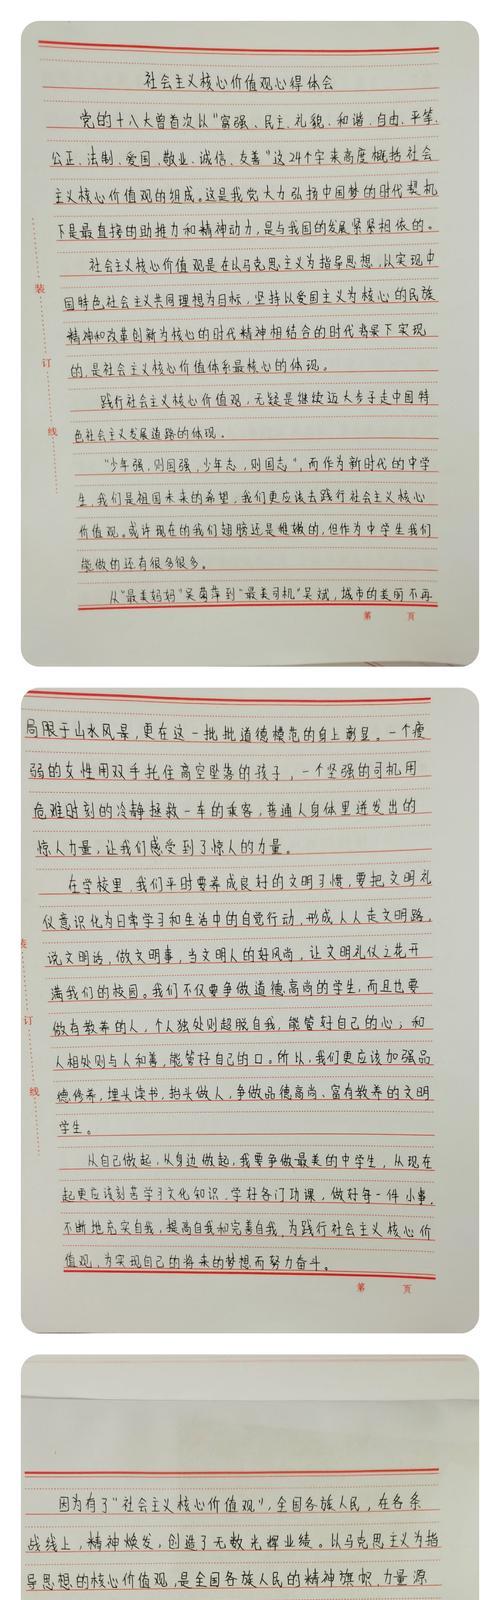 社会主义核心价值观心得体会
党的十八大曾首次以"富强、民主、礼貌、和谐、自由、平等、
公正、法制、爱国、敬业、诚信、友善"这24个字来高度概括社会
主义核心价值观的组成。这是我党大力弘扬中国梦的时代契机
下是最直接的助推力和精神动力，是与我国的发展紧紧相依的。
社会主义核心价值观是在以马克思主义为指导思想，以实现中
国特色社会主义共同理想为目标，坚持以爱国主义为核心的民族
精神和改革创新为核心的时代精神相结合的时代背景下实现
的，是社会主义核心价值体系最核心的体现。
践行社会主义核心价值观，无疑是继续迈大步子走中国特
色社会主义发展道路的体现。
"少年强，则国强，少年志，则国志"，而作为新时代的中学
生，我们是祖国未来的希望，我们更应该去践行社会主义核心
价值观。或许现在的我们翅膀还是稚嫩的，但作为中学生我们
能做的还有很多很多。
从"最美妈妈"吴菊萍到"最美司机"吴斌，城市的美丽不再
装
订
线
第 页
局限于山水风景，更在这一批批道德模范的身上彰显。一个瘦
弱的女性用双手托住高空坠落的孩子，一个坚强的司机用
危难时刻的冷静拯救一车的乘客，普通人身体里迸发出的
惊人力量，让我们感受到了惊人的力量。
在学校里，我们平时要养成良好的文明习惯，要把文明礼
仪意识化为日常学习和生活中的自觉行动，形成人人走文明路，
说文明话，做文明事，当文明人的好风尚，让文明礼仪之花开
满我们的校园。我们不仅要争做道德高尚的学生，而且也要
做有教养的人，个人独处则超脱自我，能管好自己的心；和
人相处则与人和善，能管好自己的口。所以，我们更应该加强品
德修养，埋头读书，抬头做人，争做品德高尚、富有教养的文明
学生。
从自己做起，从身边做起，我要争做最美的中学生，从现在
起更应该刻苦学习文化知识，学好各门功课，做好每一件小事，
不断地充实自我，提高自我和完善自我，为践行社会主义核心价
值观，为实现自己的将来的梦想而努力奋斗。
装
订
线
第 页
因为有了"社会主义核心价值观"，全国各族人民，在各条
战线上，精神焕发，创造了无数光辉业绩。以马克思主义为指
导思想的核心价值观，是全国各族人民的精神旗帜，力量源